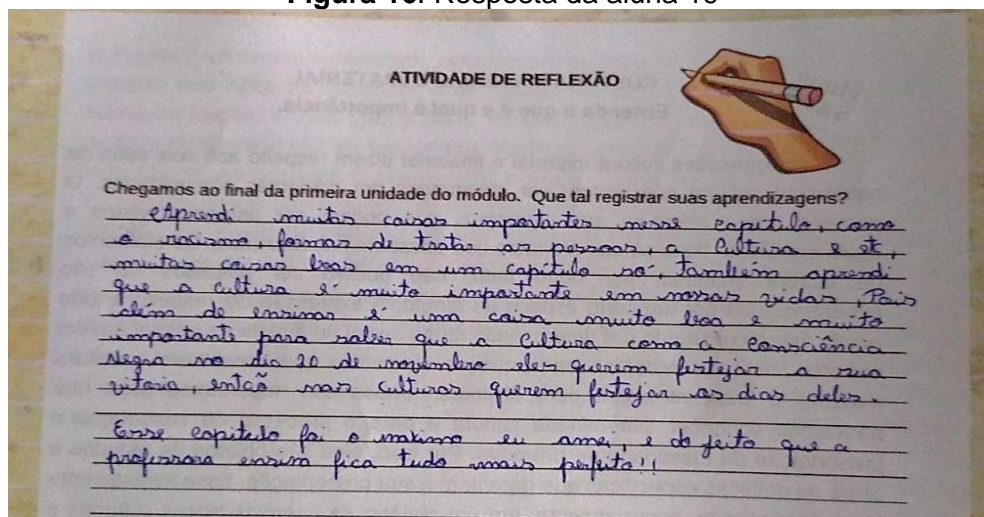 Figura 16: Resposta da aluna 16
ATIVIDADE DE REFLEXÃO
Chegamos ao final da primeira unidade do módulo. Que tal registrar suas aprendizagens?
Aprendi muitas coisas importantes nesse capitulo, como
o racismo, formas de tratar as pessoas, a Cultura e et,
muitas coisas boas em um capítulo só, também aprendi
que a cultura é muito importante em nossas vidas, Pois
além de ensinar é uma coisa muito boa e muito
importante para saber que a Cultura como a Consciência
Negra no dia 20 de novembro eles querem festejar a sua
vitoria, então nas culturas querem festejar os dias deles.
Esse capitulo foi o maximo eu amei, e do jeito que a
professora ensina fica tudo mais perfeito!!